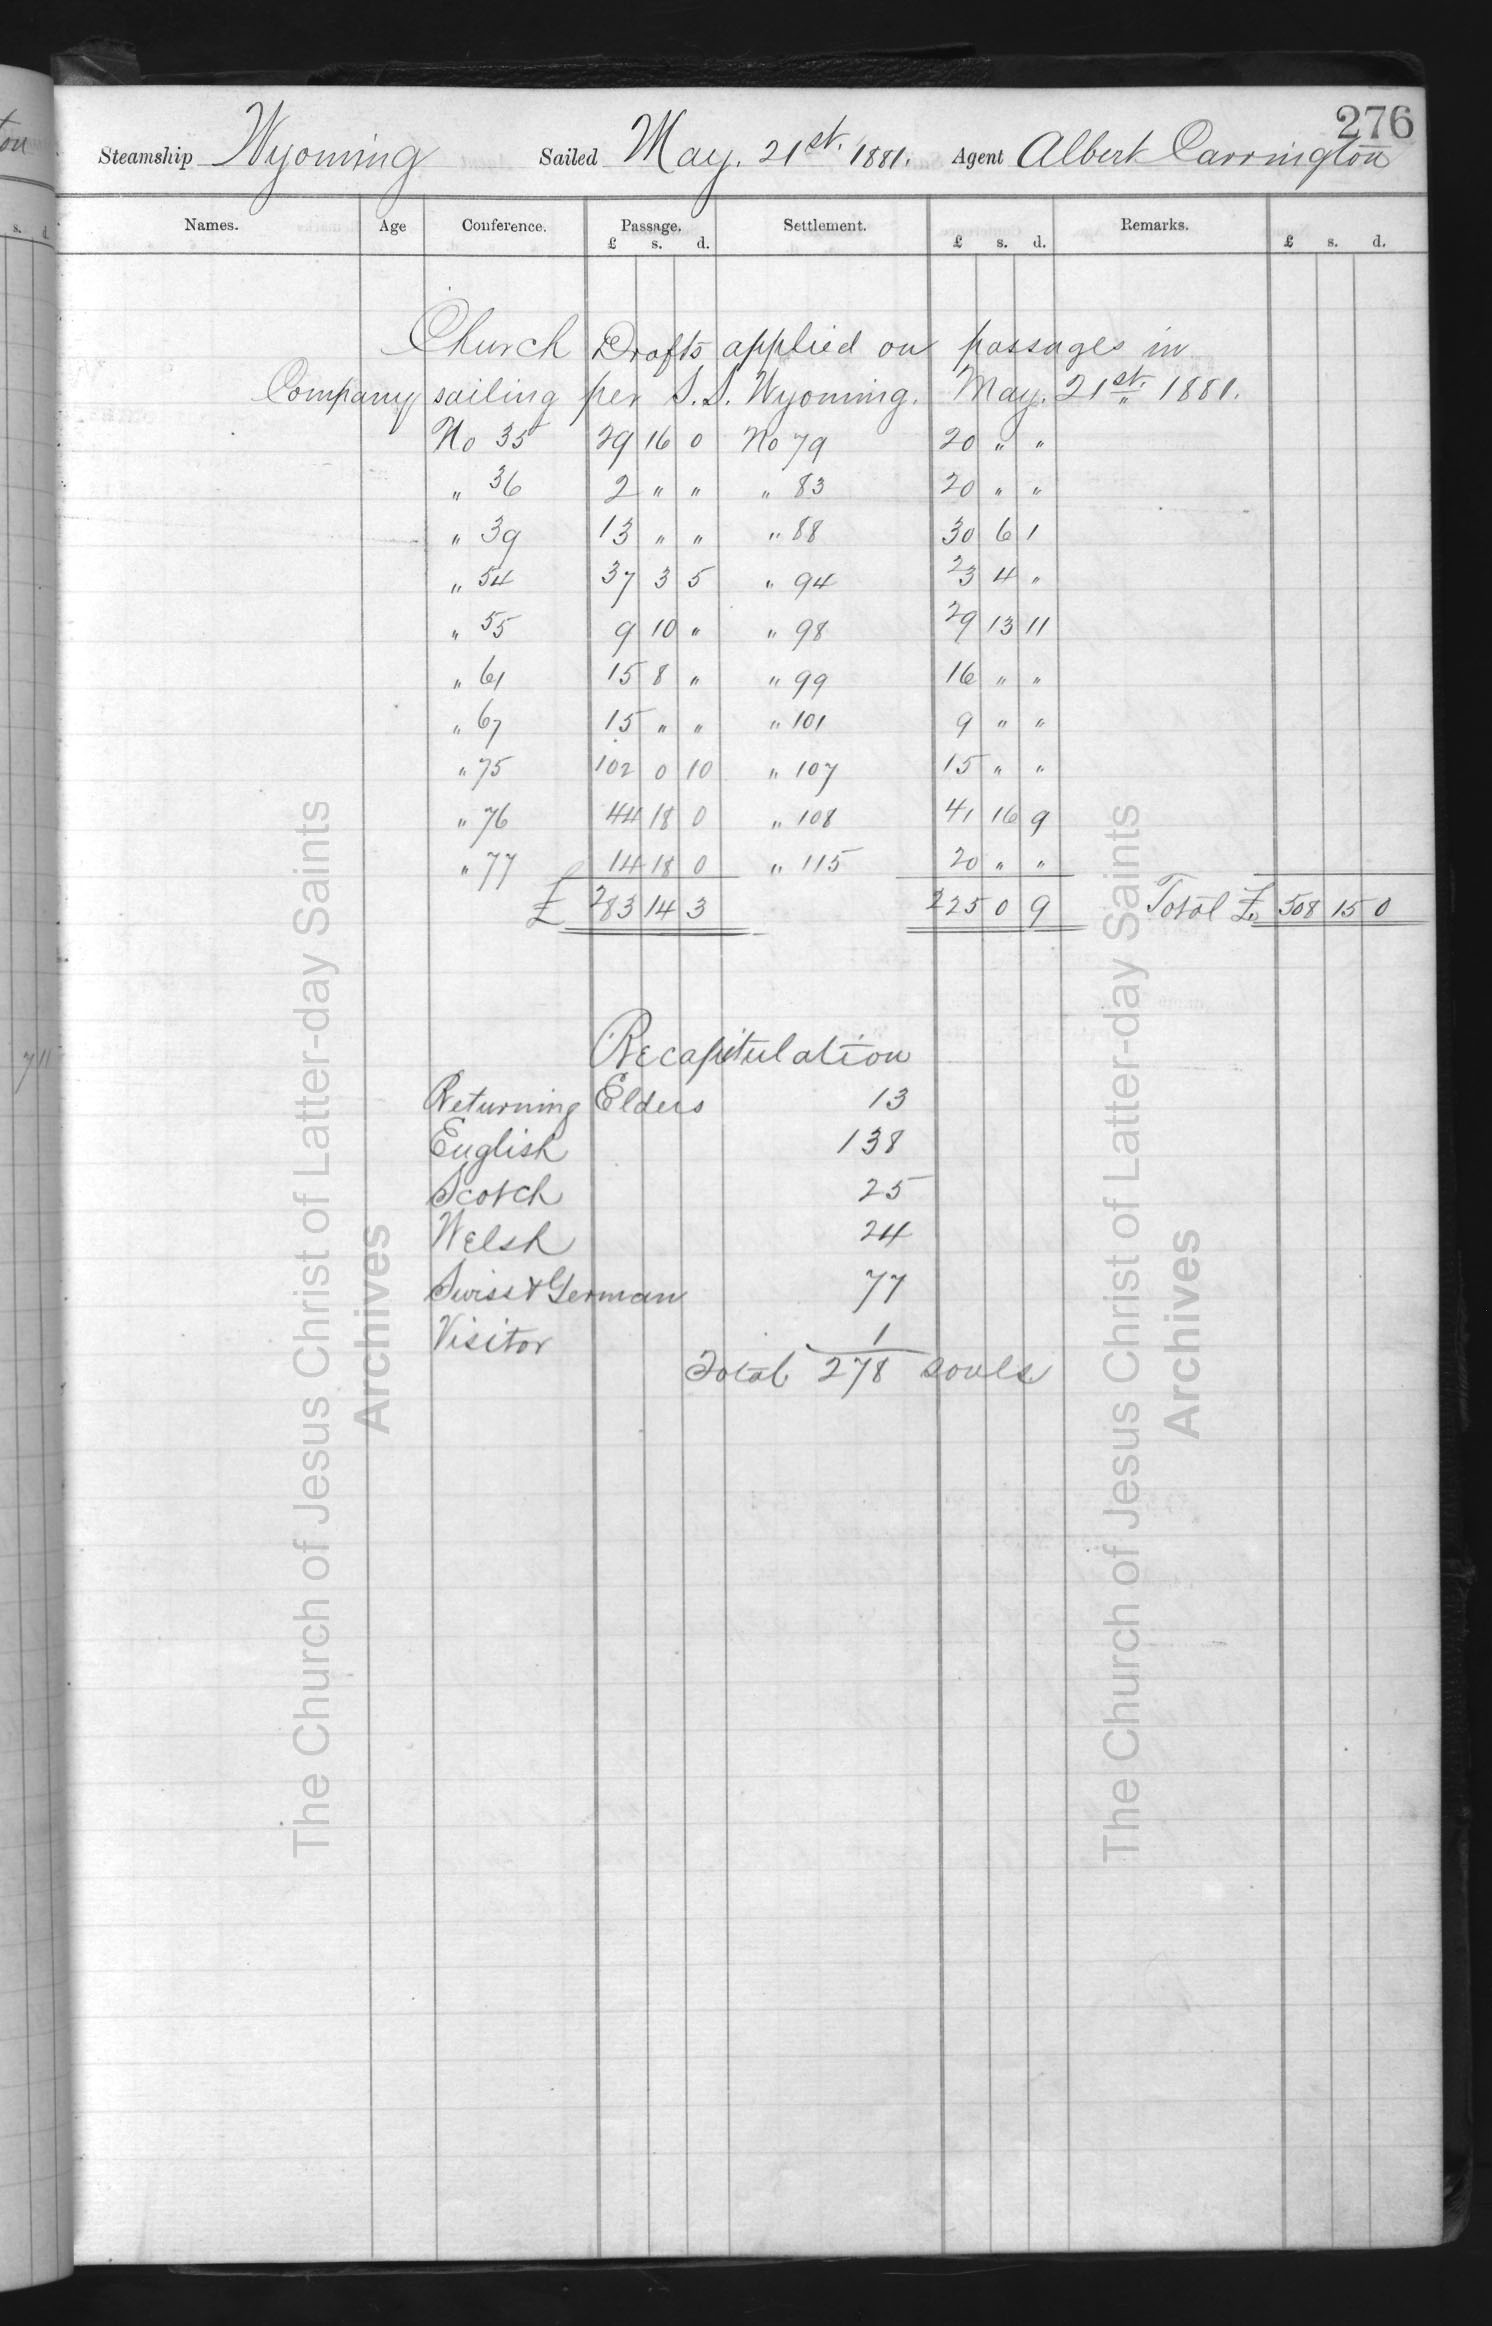 276
Steamship Wyoming Sailed May. 21st. 1881. Agent Albert Carrington
Names. Age Conference. Passage. Settlement. Remarks.
£ s. d. £ s. d. £ s. d.
Church Drafts applied on passages in
Company sailing per S.S. Wyoming. May. 21st. 1881.
No 35 29 16 0 No 79 20 " "
" 36 2 " " " 83 20 " "
" 39 13 " " " 88 30 6 1
" 54 37 3 5 " 94 23 4 "
" 55 9 10 " " 98 29 13 11
" 61 15 8 " " 99 16 " "
" 67 15 " " " 101 9 " "
" 75 102 0 10 " 107 15 " "
" 76 44 18 0 " 108 41 16 9
" 77 14 18 0 " 115 20 " "
£ 283 14 3 225 0 9 Total £ 508 15 0
Recapitulation
Returning Elders 13
English 138
Scotch 25
Welsh 24
Swiss & German 77
Visitor 1
Total 278 souls
The Church of Jesus Christ of Latter-day Saints
Archives
The Church of Jesus Christ of Latter-day Saints
Archives